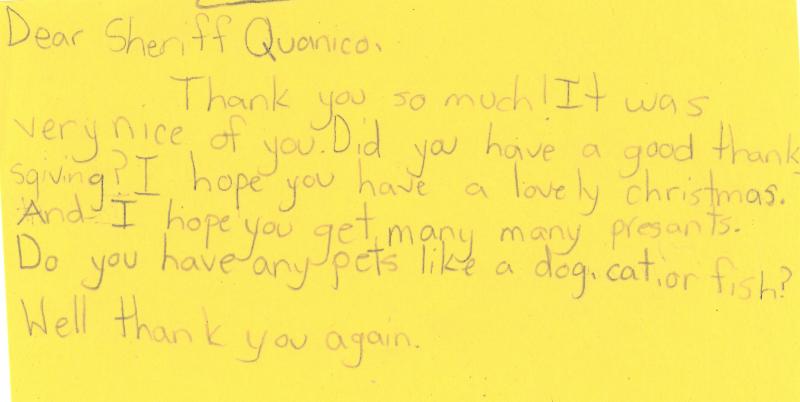 Dear Sheriff Quanico,
Thank you so much! It was
very nice of you. Did you have a good thank
sgiving? I hope you have a lovely christmas.
And I hope you get many many presants.
Do you have any pets like a dog, cat, or fish?
Well thank you again.